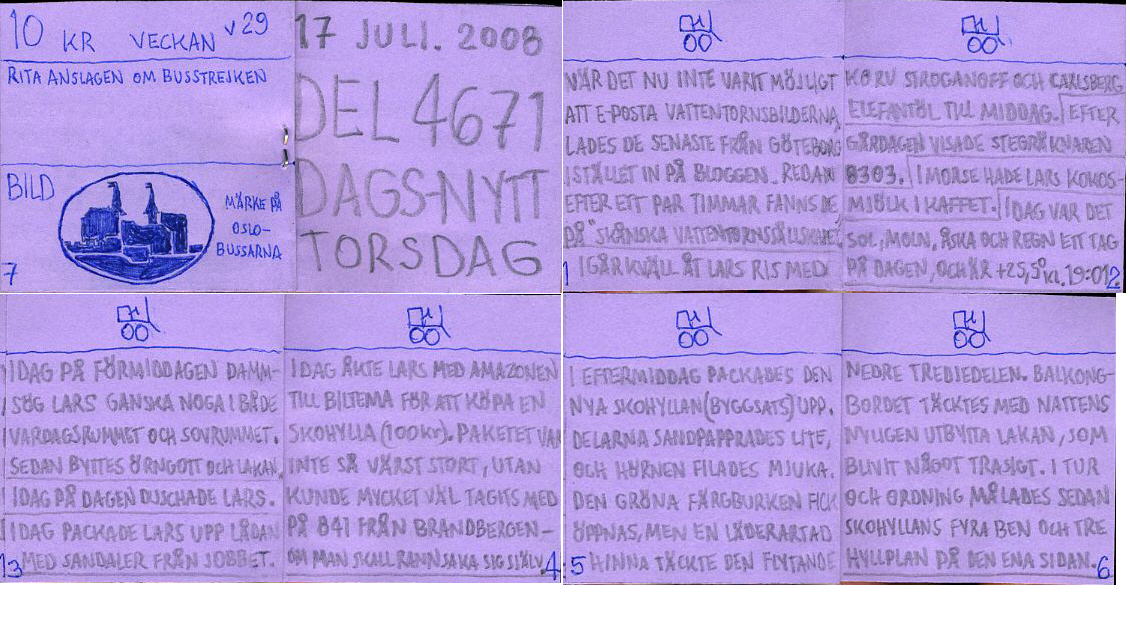 10 KR VECKAN V 29
RITA ANSLAGEN OM BUSSTREJKEN
BILD
MÄRKE PÅ
OSLO-
BUSSARNA
7
17 JULI. 2008
DEL 4671
DAGS-NYTT
TORSDAG
VAR DET NU INTE VARIT MÖJLIGT
ATT E-POSTA VATTENTORNSBILDERNA
LADES DE SENASTE FRÅN GÖTEBORG
ISTÄLLET IN PÅ BLOGGEN. REDAN
EFTER ETT PAR TIMMAR FANNS DE
PÅ "SKÅNSKA VATTENTORNSÄLLSKAPET".
IGÅR KVÄLL ÅT LARS RIS MED
1
KORV STROGANOFF OCH CARLSBERG
ELEFANTÖL TILL MIDDAG. EFTER
GÅRDAGEN VISADE STEGRÄKNAREN
8303. I MORSE HADE LARS KOKOS-
MJÖLK I KAFFET. IDAG VAR DET
SOL, MOLN, ÅSKA OCH REGN ETT TAG
PÅ DAGEN, OCH ÄR +25,5° KL. 19:01
2
IDAG PÅ FÖRMIDDAGEN DAMM-
SÖG LARS GANSKA NOGA I BÅDE
VARDAGSRUMMET OCH SOVRUMMET.
SEDAN BYTTES ÖRNGOTT OCH LAKAN.
IDAG PÅ DAGEN DUSCHADE LARS.
IDAG PACKADE LARS UPP LÅDAN
MED SANDALER FRÅN JOBBET.
3
IDAG ÅKTE LARS MED AMAZONEN
TILL BILTEMA FÖR ATT KÖPA EN
SKOHYLLA (100kr). PAKETET VAR
INTE SÅ VÄRST STORT, UTAN
KUNDE MYCKET VÄL TAGITS MED
PÅ 841 FRÅN BRANDBERGEN -
OM MAN SKALL RANNSAKA SIG SJÄLV.
4
I EFTERMIDDAG PACKADES DEN
NYA SKOHYLLAN (BYGGSATS) UPP.
DELARNA SANDPAPPRADES LITE,
OCH HÖRNEN FILADES MJUKA.
DEN GRÖNA FÄRGBURKEN FICK
ÖPPNAS, MEN EN LÄDERARTAD
HINNA TÄCKTE DEN FLYTANDE
5
NEDRE TREDJEDELEN. BALKONG-
BORDET TÄCKTES MED NATTENS
NYLIGEN UTBYTTA LAKAN, SOM
BLIVIT NÅGOT TRASIGT. I TUR
OCH ORDNING MÅLADES SEDAN
SKOHYLLANS FYRA BEN OCH TRE
HYLLPLAN PÅ DEN ENA SIDAN.
6